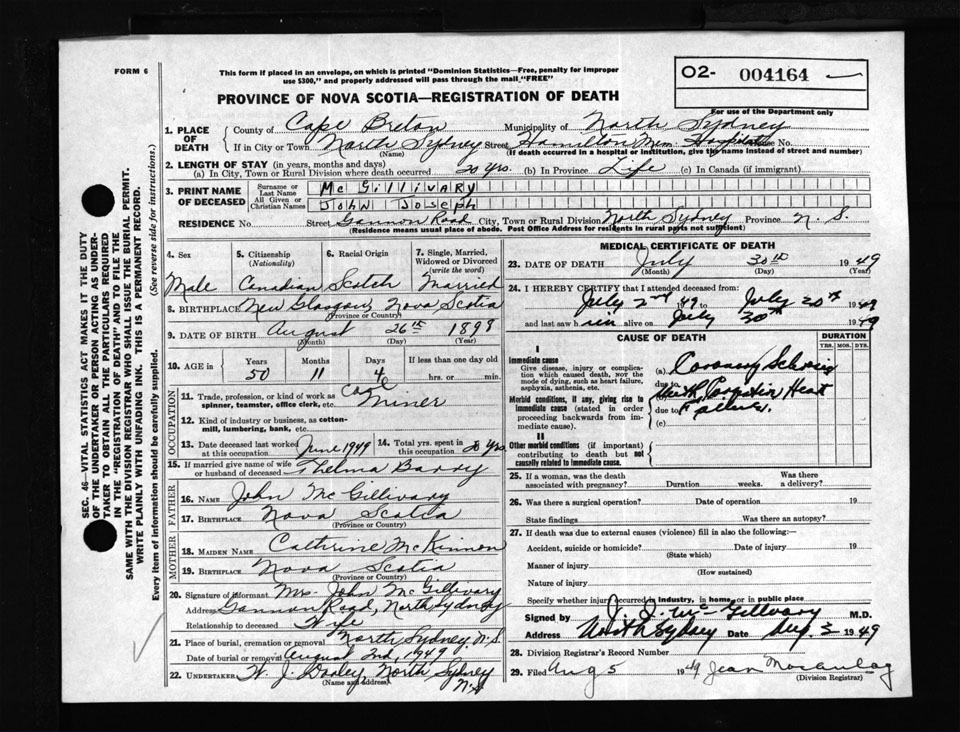 FORM 6
This form if placed in an envelope, on which is printed "Dominion Statistics—Free, penalty for improper
use $300," and properly addressed will pass through the mail "FREE"
O2- 004164
For use of the Department only
PROVINCE OF NOVA SCOTIA—REGISTRATION OF DEATH
1. PLACE OF DEATH
County of Cape Breton Municipality of North Sydney
If in City or Town North Sydney Street Hamilton Mem. Hospital House No.
(Name) (If death occurred in a hospital or institution, give the name instead of street and number)
2. LENGTH OF STAY (in years, months and days)
(a) In City, Town or Rural Division where death occurred 20 yrs. (b) In Province Life (c) In Canada (if immigrant)
3. PRINT NAME OF DECEASED
Surname or Last Name McGillivary
All Given or Christian Names John Joseph
RESIDENCE No. Street Gannon Road City, Town or Rural Division North Sydney Province N. S.
(Residence means usual place of abode. Post Office Address for residents in rural parts not sufficient)
4. Sex
Male
5. Citizenship (Nationality)
Canadian
6. Racial Origin
Scotch
7. Single, Married, Widowed or Divorced (write the word)
Married
8. BIRTHPLACE New Glasgow, Nova Scotia
(Province or Country)
9. DATE OF BIRTH August 26th 1898
(Month) (Day) (Year)
10. AGE in Years Months Days If less than one day old
50 11 4 hrs. or min.
OCCUPATION
11. Trade, profession, or kind of work as spinner, teamster, office clerk, etc. Coal Miner
12. Kind of industry or business, as cotton-mill, lumbering, bank, etc.
13. Date deceased last worked at this occupation June 1949 14. Total yrs. spent in this occupation 20 yrs
15. If married give name of wife or husband of deceased Thelma Barry
FATHER
16. NAME John McGillivary
17. BIRTHPLACE Nova Scotia
(Province or Country)
MOTHER
18. MAIDEN NAME Cathrine McKinnon
19. BIRTHPLACE Nova Scotia
(Province or Country)
20. Signature of informant Mrs. John McGillivary
Address Gannon Road, North Sydney
Relationship to deceased Wife
21. Place of burial, cremation or removal North Sydney N.S.
Date of burial or removal August 2nd, 1949
22. UNDERTAKER W. J. Dooley North Sydney N.S
(Name and address)
MEDICAL CERTIFICATE OF DEATH
23. DATE OF DEATH July 30th 1949
(Month) (Day) (Year)
24. I HEREBY CERTIFY that I attended deceased from:
July 2nd 49 to July 30th 1949
and last saw him alive on July 30th 1949
CAUSE OF DEATH
DURATION
YRS. MOS. DYS.
I
Immediate cause
Give disease, injury or complication which caused death, not the mode of dying, such as heart failure, asphyxia, asthenia, etc.
(a) Coronary
due to with Heart
Morbid conditions, if any, giving rise to immediate cause (stated in order proceeding backwards from immediate cause).
(b)
due to Failure.
(c)
II
Other morbid conditions (if important) contributing to death but not causally related to immediate cause.
25. If a woman, was the death associated with pregnancy? Duration weeks. Was there a delivery?
26. Was there a surgical operation? Date of operation 19
State findings Was there an autopsy?
27. If death was due to external causes (violence) fill in also the following:—
Accident, suicide or homicide? Date of injury 19
(State which)
Manner of injury
(How sustained)
Nature of injury
Specify whether injury occurred in industry, in home or in public place
Signed by McGillvary M.D.
Address North Sydney Date Aug. 3 1949
28. Division Registrar's Record Number
29. Filed Aug 5 1949 Jean Macaulay
(Division Registrar)
SEC. 46—VITAL STATISTICS ACT MAKES IT THE DUTY
OF THE UNDERTAKER OR PERSON ACTING AS UNDER-
TAKER TO OBTAIN ALL THE PARTICULARS REQUIRED
IN THE "REGISTRATION OF DEATH" AND TO FILE THE
SAME WITH THE DIVISION REGISTRAR WHO SHALL ISSUE THE BURIAL PERMIT.
WRITE PLAINLY WITH UNFADING INK. THIS IS A PERMANENT RECORD.
Every item of information should be carefully supplied. (See reverse side for instructions.)